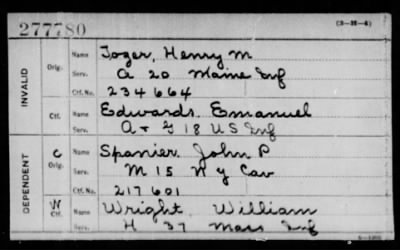 277780 (3-35-4)
INVALID
Orig. Name Toger, Henry M
Serv. A 20 Maine Inf
Ctf. No. 234664
Ctf. Name Edwards, Emanuel
Serv. A + G 18 U S Inf
DEPENDENT
C Orig. Name Spanier, John P
Serv. M 15 N Y Cav
Ctf. No. 217601
W Ctf. Name Wright William
H 37 Mass Inf